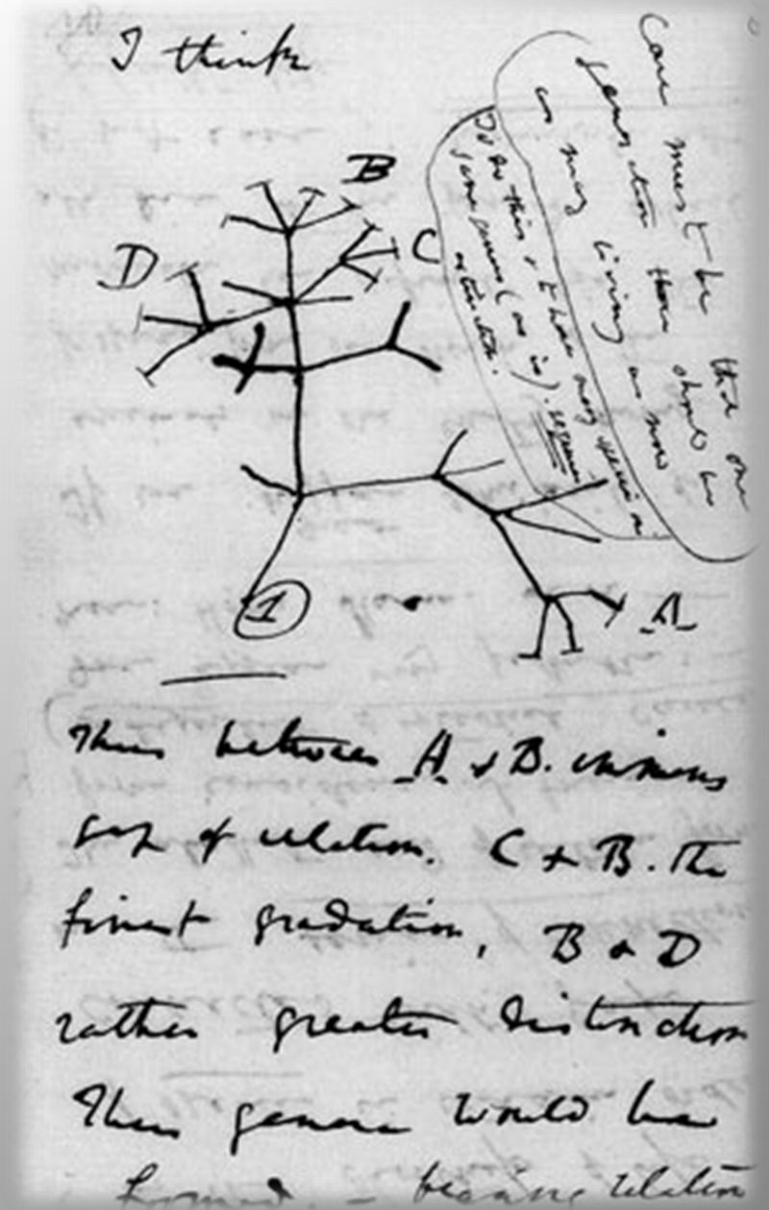 I think
B
D
C
A
1
Case must be that one
generation then should be
as many living as now
To do this & to have many species in
same genus (as is). requires
extinction.
Thus between A & B. immens
gap of relation. C & B. The
finest gradation, B & D
rather greater distinction
Thus genera would be
formed. — bearing relation